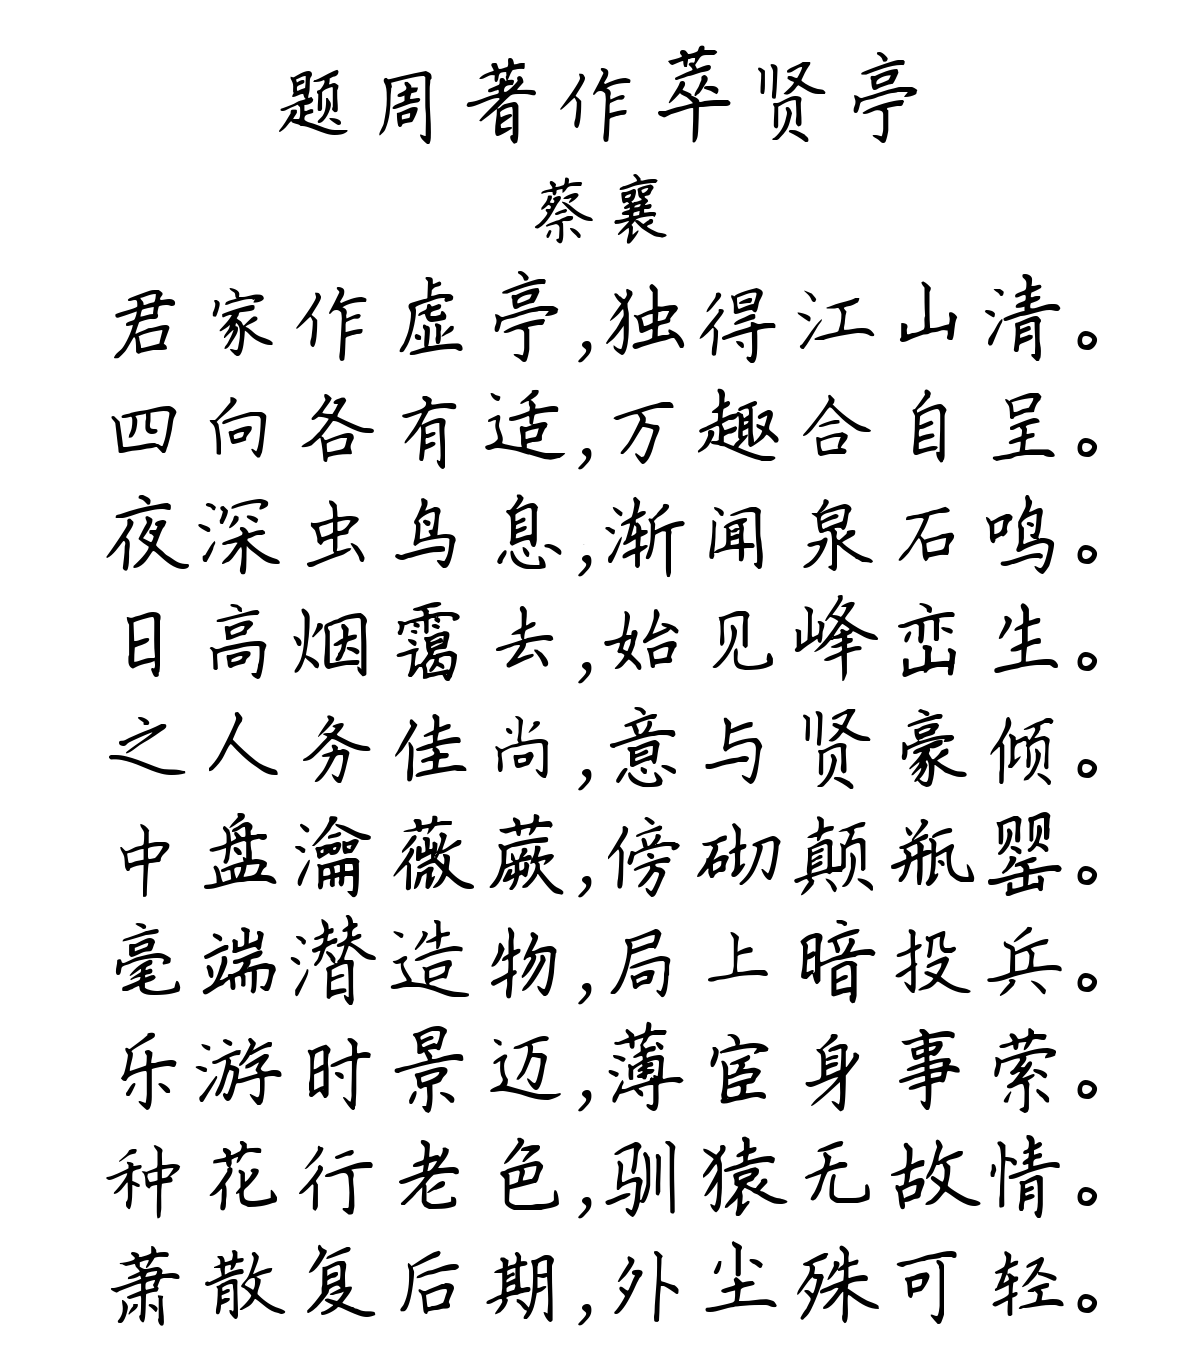 题周著作萃贤亭
蔡襄
君家作虚亭,独得江山清。
四向各有适,万趣合自呈。
夜深虫鸟息,渐闻泉石鸣。
日高烟霭去,始见峰峦生。
之人务佳尚,意与贤豪倾。
中盘瀹薇蕨,傍砌颠瓶罂。
毫端潜造物,局上暗投兵。
乐游时景迈,薄宦身事萦。
种花行老色,驯猿无故情。
萧散复后期,外尘殊可轻。